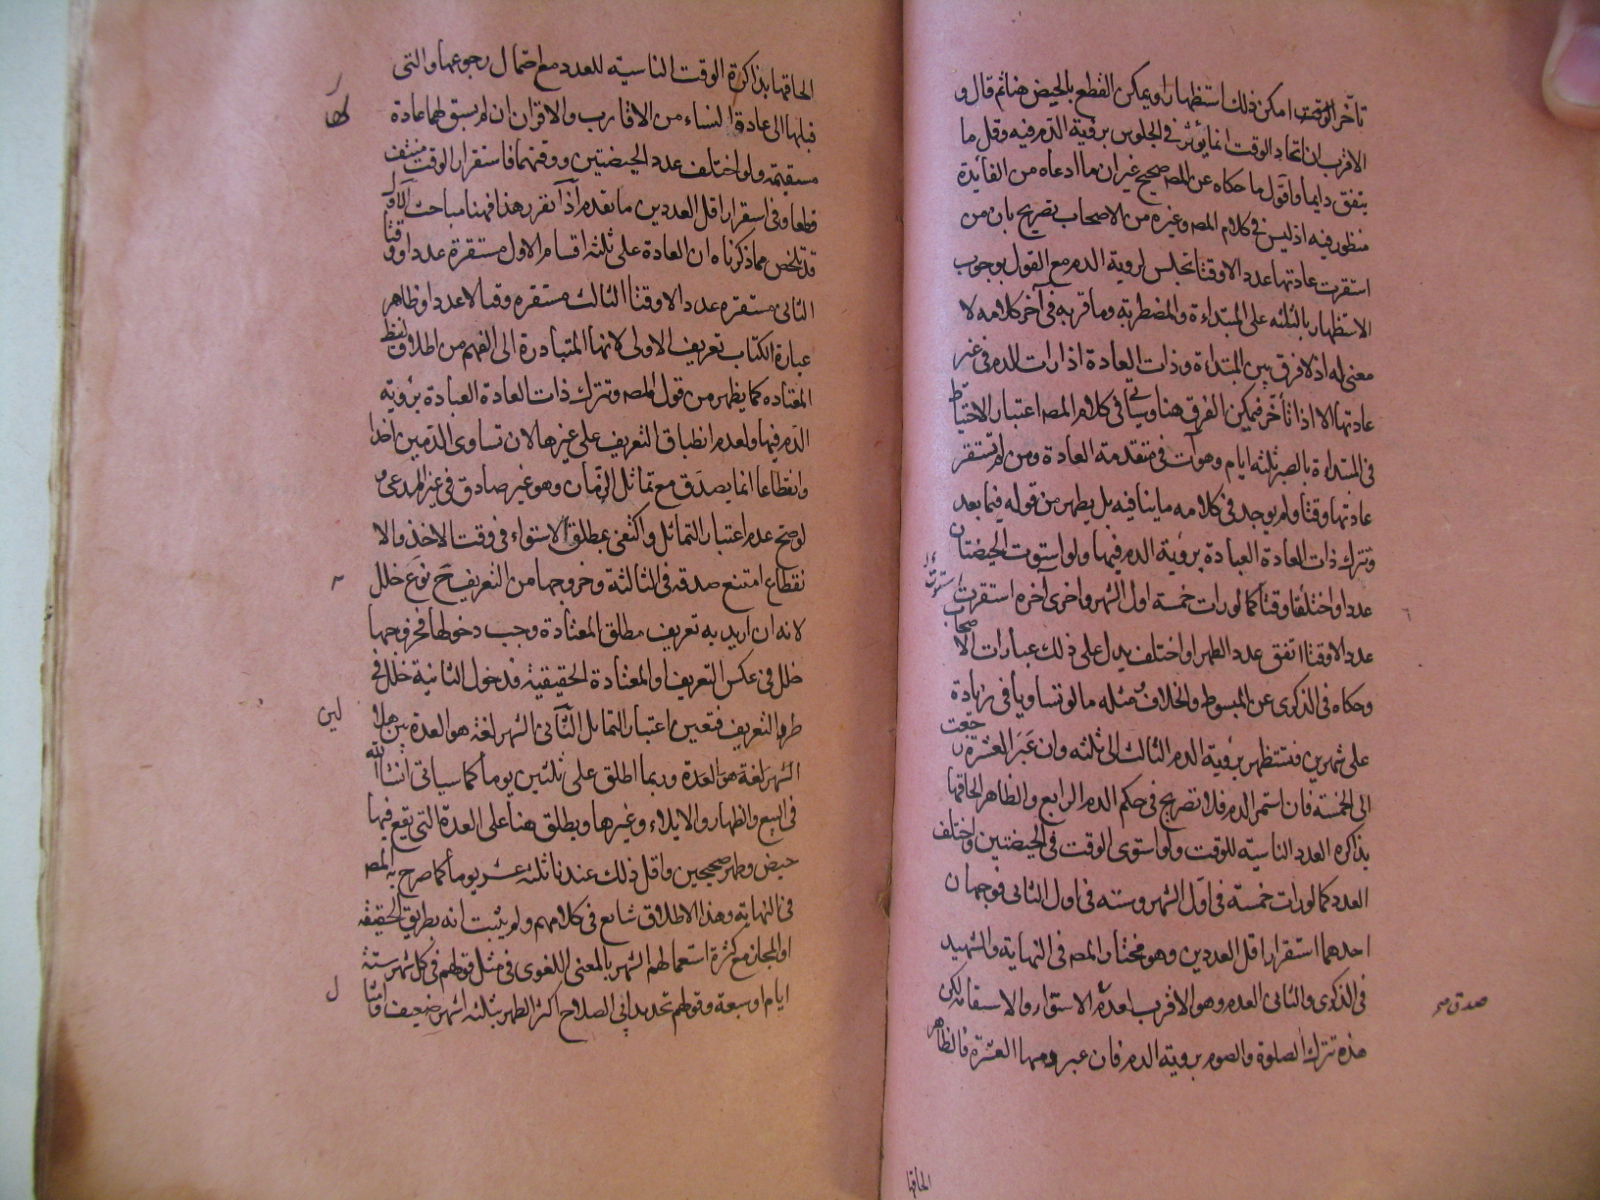 تأخر الوقت امكن ذلك استظهارا ويمكن القطع بالحيض هنا ثم قال و
الاقرب ان اتحاد الوقت انما يؤثر في الجلوس برؤية الدم فيه وقل ما
يتفق دايما واقول ما حكاه عن المص صحيح غير ان ما ادعاه من الفائدة
منظور فيه اذ ليس في كلام المص وغيره من الاصحاب تصريح بان من
استقرت عادتها عددا لا وقتا تجلس لروية الدم مع القول بوجوب
الاستظهار بالثلثه على المبتداءة والمضطربة وما قربه في آخر كلامه لا
معنى له اذ لا فرق بين المبتداة وذات العادة اذا رات الدم في غير
عادتها الا اذا تأخر فيمكن الفرق هنا وسيأتي في كلام المص اعتبار الاحتياط
في المبتداءة بالصبر ثلثه ايام وهو آت في متقدمة العادة ومن لم تستقر
عادتها وقتا ولم يوجد في كلامه ما ينافيه بل يظهر من قوله فيما بعد
وتترك ذات العادة العبادة برؤية الدم فيها ولو استوت الحيضتان
عددا واختلفا وقتا كما لو رات خمسة اول الشهر واخرى آخره استقرت
عددا لا وقتا اتفق عدد الطهر او اختلف يدل على ذلك عبارات الا
صحاب
وحكاه في الذكرى عن المبسوط والخلاف ومثله ما لو تساويا في زيادة
على شهرين فتستظهر برؤية الدم الثالث الى ثلثه وان عبر العشرة رجعت
الى الخمسة فان استمر الدم فلا تصريح في حكم الدم الرابع والظاهر الحاقها
بذاكره العدد الناسيه للوقت ولو استوى الوقت في الحيضتين واختلف
العدد كما لو رات خمسة في اول الشهر وسته في اول الثاني فوجهان
احدهما استقرار اقل العددين وهو مختار المص في النهاية والشهيد
في الذكرى والثاني العدم وهو الاقرب لعدم الاستواء والاستقامة لكن
صدق صح
هذه تترك الصلوة والصوم بروية الدم فان عبر دمها العشرة فالظاهر
الحاقها
الحاقها بذاكرة الوقت الناسيه للعدد مع احتمال رجوعها والتى
قبلها الى عادة النساء من الاقارب والاقران ان لم يسبق لهما عادة
مستقيمة ولو اختلف عدد الحيضتين ووقتهما فاستقرار الوقت منتف
قطعا وفي استقرار اقل العددين ما تقدم اذا تقرر هذا فهنا مباحث الاول
قد تلخص مما ذكرناه ان العادة على ثلثه اقسام الاول مستقرة عددا ووقتا
الثاني مستقره عددا لا وقتا الثالث مستقره وقتا لا عددا وظاهر
عبارة الكتاب تعريف الاولى لانها المتبادرة الى الفهم من اطلاق لفظ
المعتاده كما يظهر من قول المص وتترك ذات العادة العبادة برؤية
الدم فيها ولعدم انطباق التعريف على غيرها لان تساوى الدمين اخذا
وانقطاعا انما يصدق مع تماثل الزمان وهو غير صادق في غير المدعى و
لو صح عدم اعتبار التماثل واكتفى بمطلق الاستواء في وقت الاخذ والا
نقطاع امتنع صدقه في الثالثة وخروجها من التعريف ح نوع خلل
لانه ان اريد به تعريف مطلق المعتادة وجب دخولها فخروجها
خلل في عكس التعريف والمعتادة الحقيقية فدخول الثانية خلل في
طرد التعريف فتعين اعتبار التماثل الثاني الشهر لغة هو العدة بين هلا
لين
الشهر لغة هو العدة وربما اطلق على ثلثين يوما كما سياتى انشاالله
في البيع والظهار والايلاء وغيرها ويطلق هنا على العدة التى يقع فيها
حيض وطهر صحيحين واقل ذلك عندنا ثلثه عشر يوما كما صرح به المص
في النهايه وهذا الاطلاق شايع في كلامهم ولم يثبت انه بطريق الحقيقه
او المجاز مع كثرة استعمالهم الشهر بالمعنى اللغوى في مثل قولهم في كل شهر ستة
ايام او سبعة وقولهم تحديد ابي الصلاح اكثر الطهر بثلثه اشهر ضعيف وامثا
ل